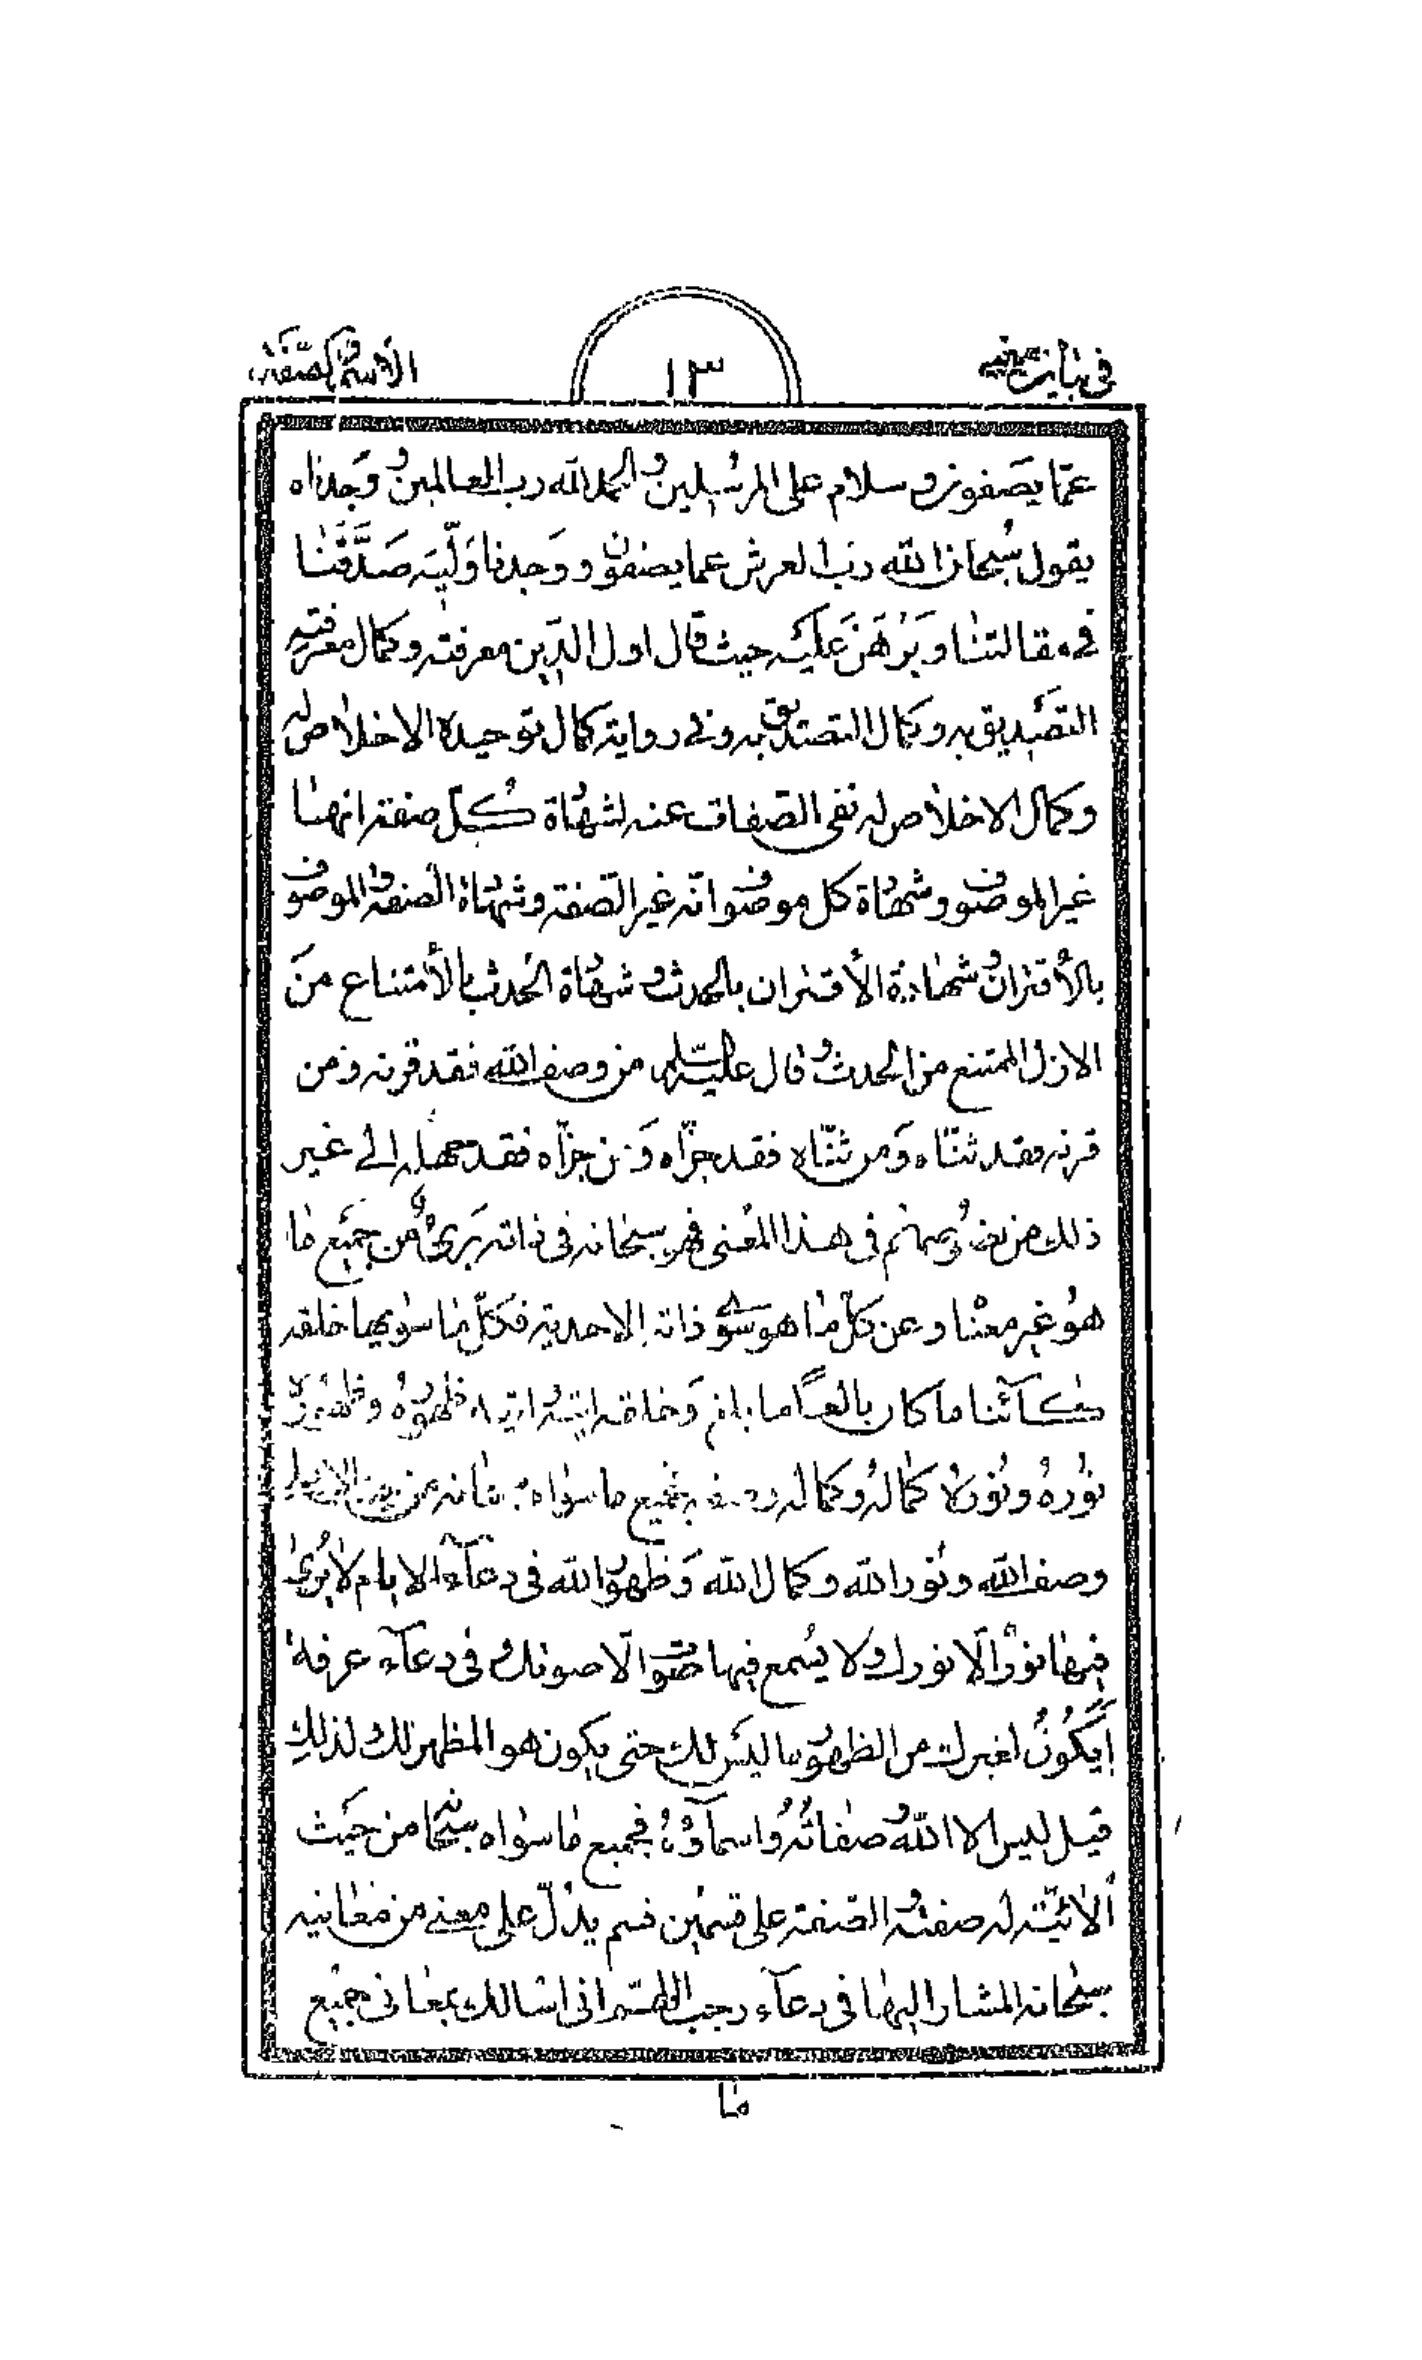 في بيان
١٣
الاسم والصفة
عمّا يصفون و سلام على المرسلين و الحمد لله رب العالمين وَجدناه
يقول سُبحان الله ربّ العرش عما يصفون و وَجدنا وَليّه صَدَّقَنا
في مقالتنا و بَرْهَنَ عَليَه حيث قال اول الدّين معرفته و كمال معرفته
التصَديق به و كمال التصديق به و في رواية كمال توحيده الاخلاص له
و كمال الاخلاص له نفى الصّفات عنه لشهادة كُلّ صفة انها
غير الموصوف و شهادة كل موصوف انّه غير الصّفة و شهادة الصّفة و الموصوف
بالأقتران و شهادة الأقتران بالحدث و شهادة الحَدث بالأمتناع منَ
الازل الممتنع من الحدث و قال عليه السّلم من وصف الله فقد قرنه و من
قرنه فقد ثنّاه وَمن ثنّاه فقد جزّاه وَ من جزّاه فقد جهله الى غير
ذلك من في هذا المعْنى فهو سبحانه في ذاته بَرىءٌ من جميَع ما
هُو غير معنا و عن كلّ ما هو سوى ذاته الاحدية فكلّ ما سويها خلقه
كآئنا ما كان بالغاً ما بلغ وَ خلقه ظهوره و ظهوره
نوُرهُ و نوُره كمالهُ و كماله وصفه بجميع ما سواه
وصف الله و نوُر الله و كمال الله وَ ظهور الله في دعآء الايام لا يُرى
فيها نورٌ الّا نورك و لا يُسمع فيها صوت الّا صوتك و في دعآء عرفة
اَيَكُونُ لغيرك من الظهور ما ليَس لك حتى يكون هو المظهر لك لذلك
قيل ليس الا الله و صفاتُهُ و اسمآؤهُ فجميع ما سواه سبحانه من حيَث
الأثنيّة له صفة و الصّفة على قسمين قسم يدُلّ على معنى من معانيه
سبحانه المشار اليها في دعآء رجب اللهم انى اسالك بمعانى جميع
ما